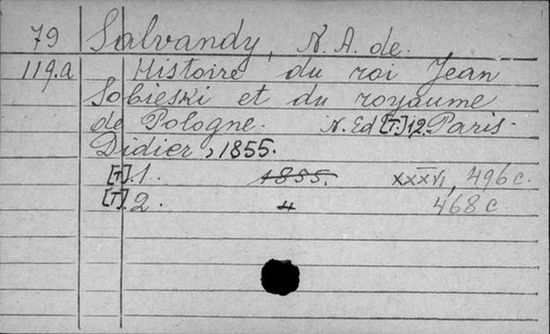 79 Salvandy, N. A. de.
119.a Histoire du roi Jean
Sobieski et du royaume
de Pologne. N. Ed [T] 12. Paris.
Didier, 1855.
[T]. 1. 1855. XXXVI, 496 c.
[T]. 2. " 468 c.